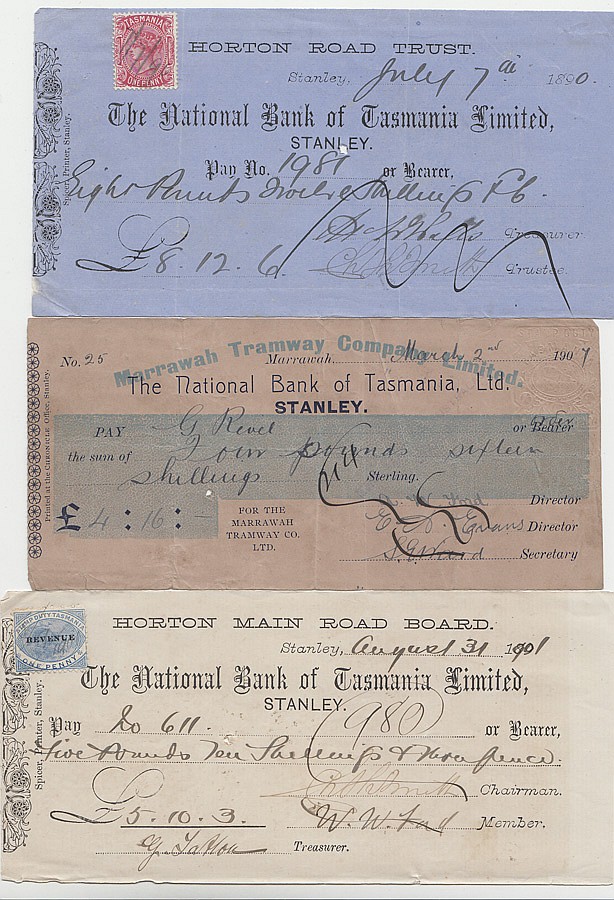 TASMANIA
ONE PENNY
HORTON ROAD TRUST.
Stanley, July 7th 1890.
The National Bank of Tasmania Limited,
STANLEY.
Pay No. 1981 or Bearer,
Eight Pounds Twelve Shillings & 6
Treasurer
£8. 12. 6. Trustee.
Spicer, Printer, Stanley.
Marrawah Tramway Company Limited.
No. 25 Marrawah, March 2nd 1907
The National Bank of Tasmania, Ltd.
STANLEY.
PAY G or Bearer
Order
the sum of Four pounds sixteen
shillings Sterling.
Director
£4 : 16 : -
FOR THE
MARRAWAH
TRAMWAY CO.
LTD.
E. Evans Director
Secretary
Printed at the CHRONICLE Office, Stanley.
STAMP DUTY TASMANIA
REVENUE
ONE PENNY
HORTON MAIN ROAD BOARD.
Stanley, August 31 1901
The National Bank of Tasmania Limited,
STANLEY.
(980)
Pay No 611. or Bearer,
Five Pounds Ten Shillings & three pence.
Chairman.
£5. 10. 3. W. W. Ford Member.
Treasurer.
Spicer, Printer, Stanley.